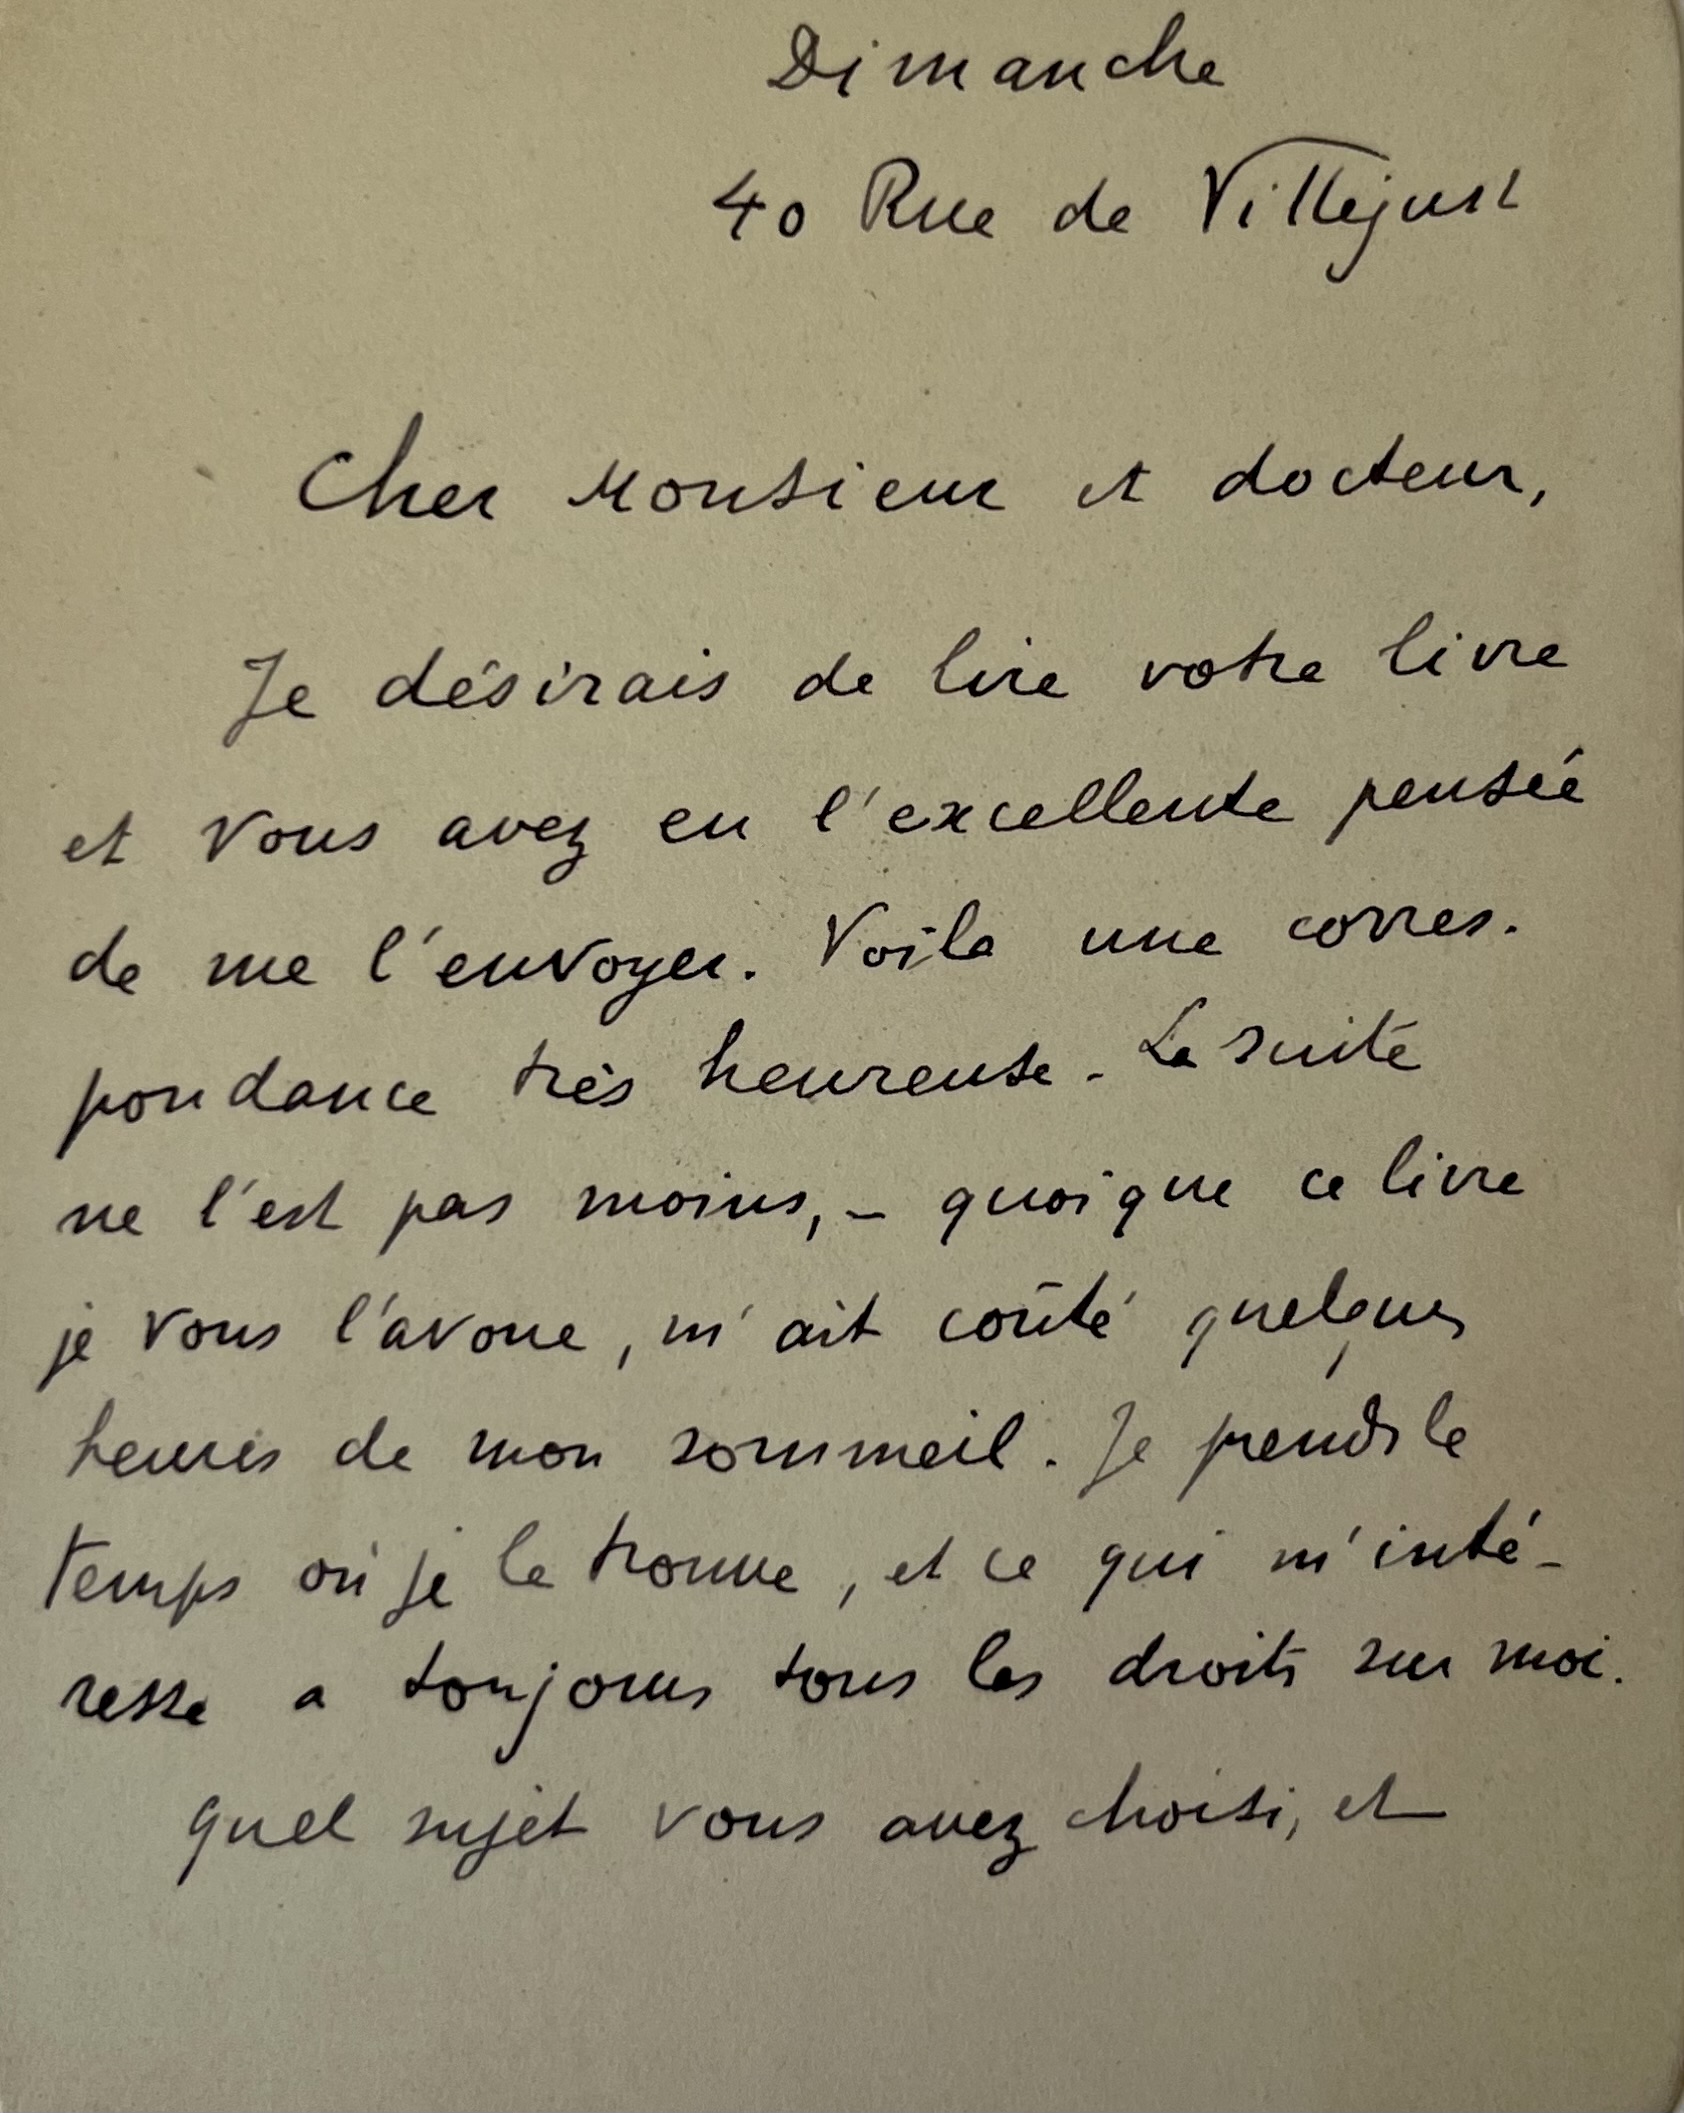 Dimanche
40 Rue de Villejust
Cher Monsieur et docteur,
Je désirais de lire votre livre
et vous avez eu l'excellente pensée
de me l'envoyer. Voilà une corres-
pondance très heureuse. La suite
ne l'est pas moins, – quoique ce livre
je vous l'avoue, m'ait coûté quelques
heures de mon sommeil. Je prends le
temps où je le trouve, et ce qui m'inté-
resse a toujours tous les droits sur moi.
Quel sujet vous avez choisi, et